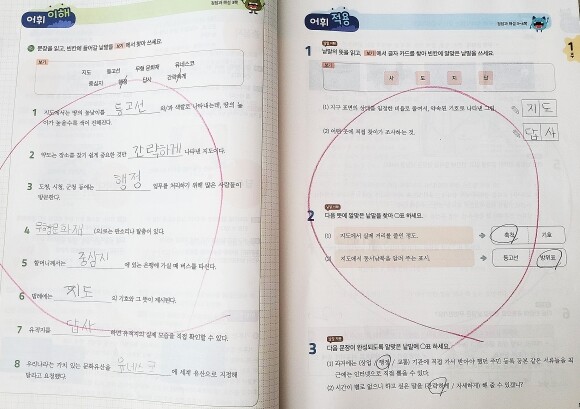 어휘 이해
정답과 해설 8쪽
문장을 읽고, 빈칸에 들어갈 낱말을 보기 에서 찾아 쓰세요.
보기
지도 등고선 무형 문화재 유네스코
중심지 행정 답사 간략하게
1 지도에서는 땅의 높낮이를 등고선 와/과 색깔로 나타내는데, 땅의 높
이가 높을수록 색이 진해진다.
2 약도는 장소를 찾기 쉽게 중요한 것만 간략하게 나타낸 지도이다.
3 도청, 시청, 군청 등에는 행정 업무를 처리하기 위해 많은 사람들이
방문한다.
4 무형문화재 (으)로는 판소리나 탈춤이 있다.
5 할머니께서는 중심지 에 있는 은행에 가실 때 버스를 타신다.
6 범례에는 지도 의 기호와 그 뜻이 제시된다.
7 유적지를 답사 하면 유적지의 실제 모습을 직접 확인할 수 있다.
8 우리나라는 가치 있는 문화유산을 유네스코 에 세계 유산으로 지정해
달라고 요청했다.
어휘 적용
정답과 해설 8쪽
1
1 낱말의 뜻을 읽고, 보기 에서 글자 카드를 찾아 빈칸에 알맞은 낱말을 쓰세요.
보기
사 도 지 답
(1) 지구 표면의 상태를 일정한 비율로 줄여서, 약속된 기호로 나타낸 그림. 지도
(2) 어떤 곳에 직접 찾아가 조사하는 것. 답사
2 다음 뜻에 알맞은 낱말을 찾아 ○표 하세요.
(1) 지도에서 실제 거리를 줄인 정도. 축척 기호
(2) 지도에서 동서남북을 알려 주는 표시. 등고선 방위표
3 다음 문장이 완성되도록 알맞은 낱말에 ○표 하세요.
(1) 과거에는 (상업 / 행정 / 교통) 기관에 직접 가서 받아야 했던 주민 등록 등본 같은 서류들을 최
근에는 인터넷으로 직접 뽑을 수 있다.
(2) 시간이 별로 없으니 하고 싶은 말을 (간략하게 / 자세하게) 해 줄 수 있겠니?